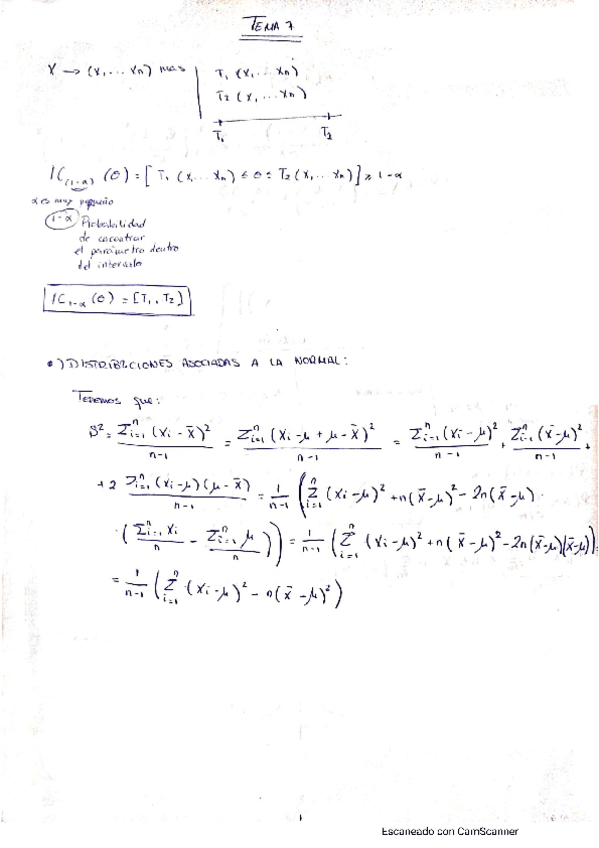 TEMA 7
X → (X₁ ... Xn) mas | T₁ (X₁ ... Xn)
T₂ (X₁ ... Xn)
T₁ T₂
IC₍₁₋α₎ (θ) = [T₁ (X₁ ... Xn) ≤ θ ≤ T₂ (X₁ ... Xn)] ≥ 1-α
α es muy pequeño
1-α Probabilidad
de encontrar
el parámetro dentro
del intervalo
IC₁₋α (θ) = [T₁, T₂]
•) DISTRIBUCIONES ASOCIADAS A LA NORMAL:
Tenemos que:
S² = Σⁿᵢ₌₁ (Xi - X̄)² / n-1 = Σⁿᵢ₌₁ (Xi - μ + μ - X̄)² / n-1 = Σⁿᵢ₌₁ (Xi - μ)² / n-1 + Σⁿᵢ₌₁ (X̄ - μ)² / n-1 +
+ 2 Σⁿᵢ₌₁ (Xi - μ)(μ - X̄) / n-1 = 1/n-1 (Σⁿᵢ₌₁ (Xi - μ)² + n(X̄ - μ)² - 2n(X̄ - μ) ·
· (Σⁿᵢ₌₁ Xi / n - Σⁿᵢ₌₁ μ / n)) = 1/n-1 (Σⁿᵢ₌₁ (Xi - μ)² + n(X̄ - μ)² - 2n(X̄ - μ)(X̄ - μ))
= 1/n-1 (Σⁿᵢ₌₁ (Xi - μ)² - n(X̄ - μ)²)
Escaneado con CamScanner